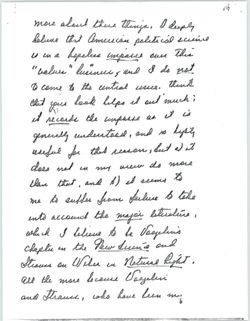 more about these things. I deeply
believe that American political science
is in a hopeless impasse over this
"values" business, and I do not
to come to the central issue. think
that your book helps it out much;
it records the impasse as it is
generally understood, and is highly
useful for that reason, but a) it
does not in my view do more
than that, and b) it seems to
me to suffer from failure to take
into account the major literature,
which I believe to be Voegelin's
chapter in the New Science and
Strauss on Weber in Natural Right.
All the more because Voegelin
and Strauss, who have been my